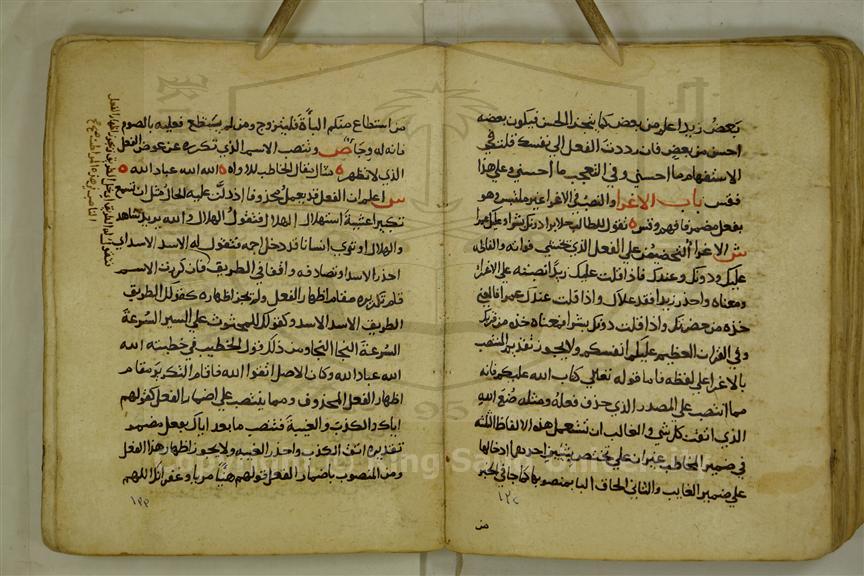 بعض زيد اعلم من بعض كما يخبر الحسن فيكون بعضه
احسن من بعض فان رددت الفعل الى نفسك قلت في
الاستفهام ما احسني وفي التعجب ما احسنني وعلى هذا
فقس باب الاغرا والنصب في الاغرا غير ملتبس وهو
بفعل مضمر فافهم وقس تقول للطالب خلا برا دونك بشرا وعليك عمرا
ش الاغرا التحضيض على الفعل الذي يخشى فواته والفاظه
عليك ودونك وعندك فاذا قلت عليك زيدا نصبته على الاغرا
ومعناه واحذر زيدا فقد علاك واذا قلت عندك عمرا فالمعنى
خذه من حضرتك واذا قلت دونك بشرا فمعناه خذه من قربك
وفي القران العظيم عليكم انفسكم ولا يجوز تقديم المنتصب
بالاغرا على لفظه فاما قوله تعالى كتاب الله عليكم فانه
مما انتصب على المصدر الذي حذف فعله ومثله صنع الله
الذي اتقن كل شي والغالب ان تستعمل هذه الالفاظ الثلثة
في ضمير المخاطب غير ان على تختص بشيين احدهما ادخالها
على ضمير الغايب والثاني الحاق البا بمنصوبها كما جا في الخبر
من
من استطاع منكم الباة فليتزوج ومن لم يستطع فعليه بالصوم
فانه له وجا ص وتنصب الاسم الذي تكرره عن عوض الفعل
الذي لا تظهره مثال مقال الخاطب للاواه الله الله عباد الله
ش اعلم ان الفعل قد يعمل محذوفا اذا دلت عليه الحال مثل ان تسمع
تكبيرا عشية استهلال الهلال فتقول الهلال والله يريد شاهد
والهلال او ترى انسانا قد دخل اجمة فتقول له الاسد الاسد اي
احذر الاسد او تصادفه واقفا في الطريق فان كررت الاسم
قام تكريره مقام اظهار الفعل ولم يجز اظهاره كقولك الطريق
الطريق الاسد الاسد وكقولك للمحثوث على السير السرعة
السرعة النجا النجا ومن ذلك قول الخطيب في خطبته الله
الله عباد الله وكان الاصل اتقوا الله فاقام التكرير مقام
اظهار الفعل المحذوف ومما ينتصب على اضمار الفعل كقولهم
اياك والكذب والغيبة فتنصب ما بعد اياك بفعل مضمر
تقديره اتق الكذب واحذر الغيبة ولا يجوز اظهار هذا الفعل
ومن المنصوب باضمار الفعل قولهم هنيا مريا وغفرانك اللهم